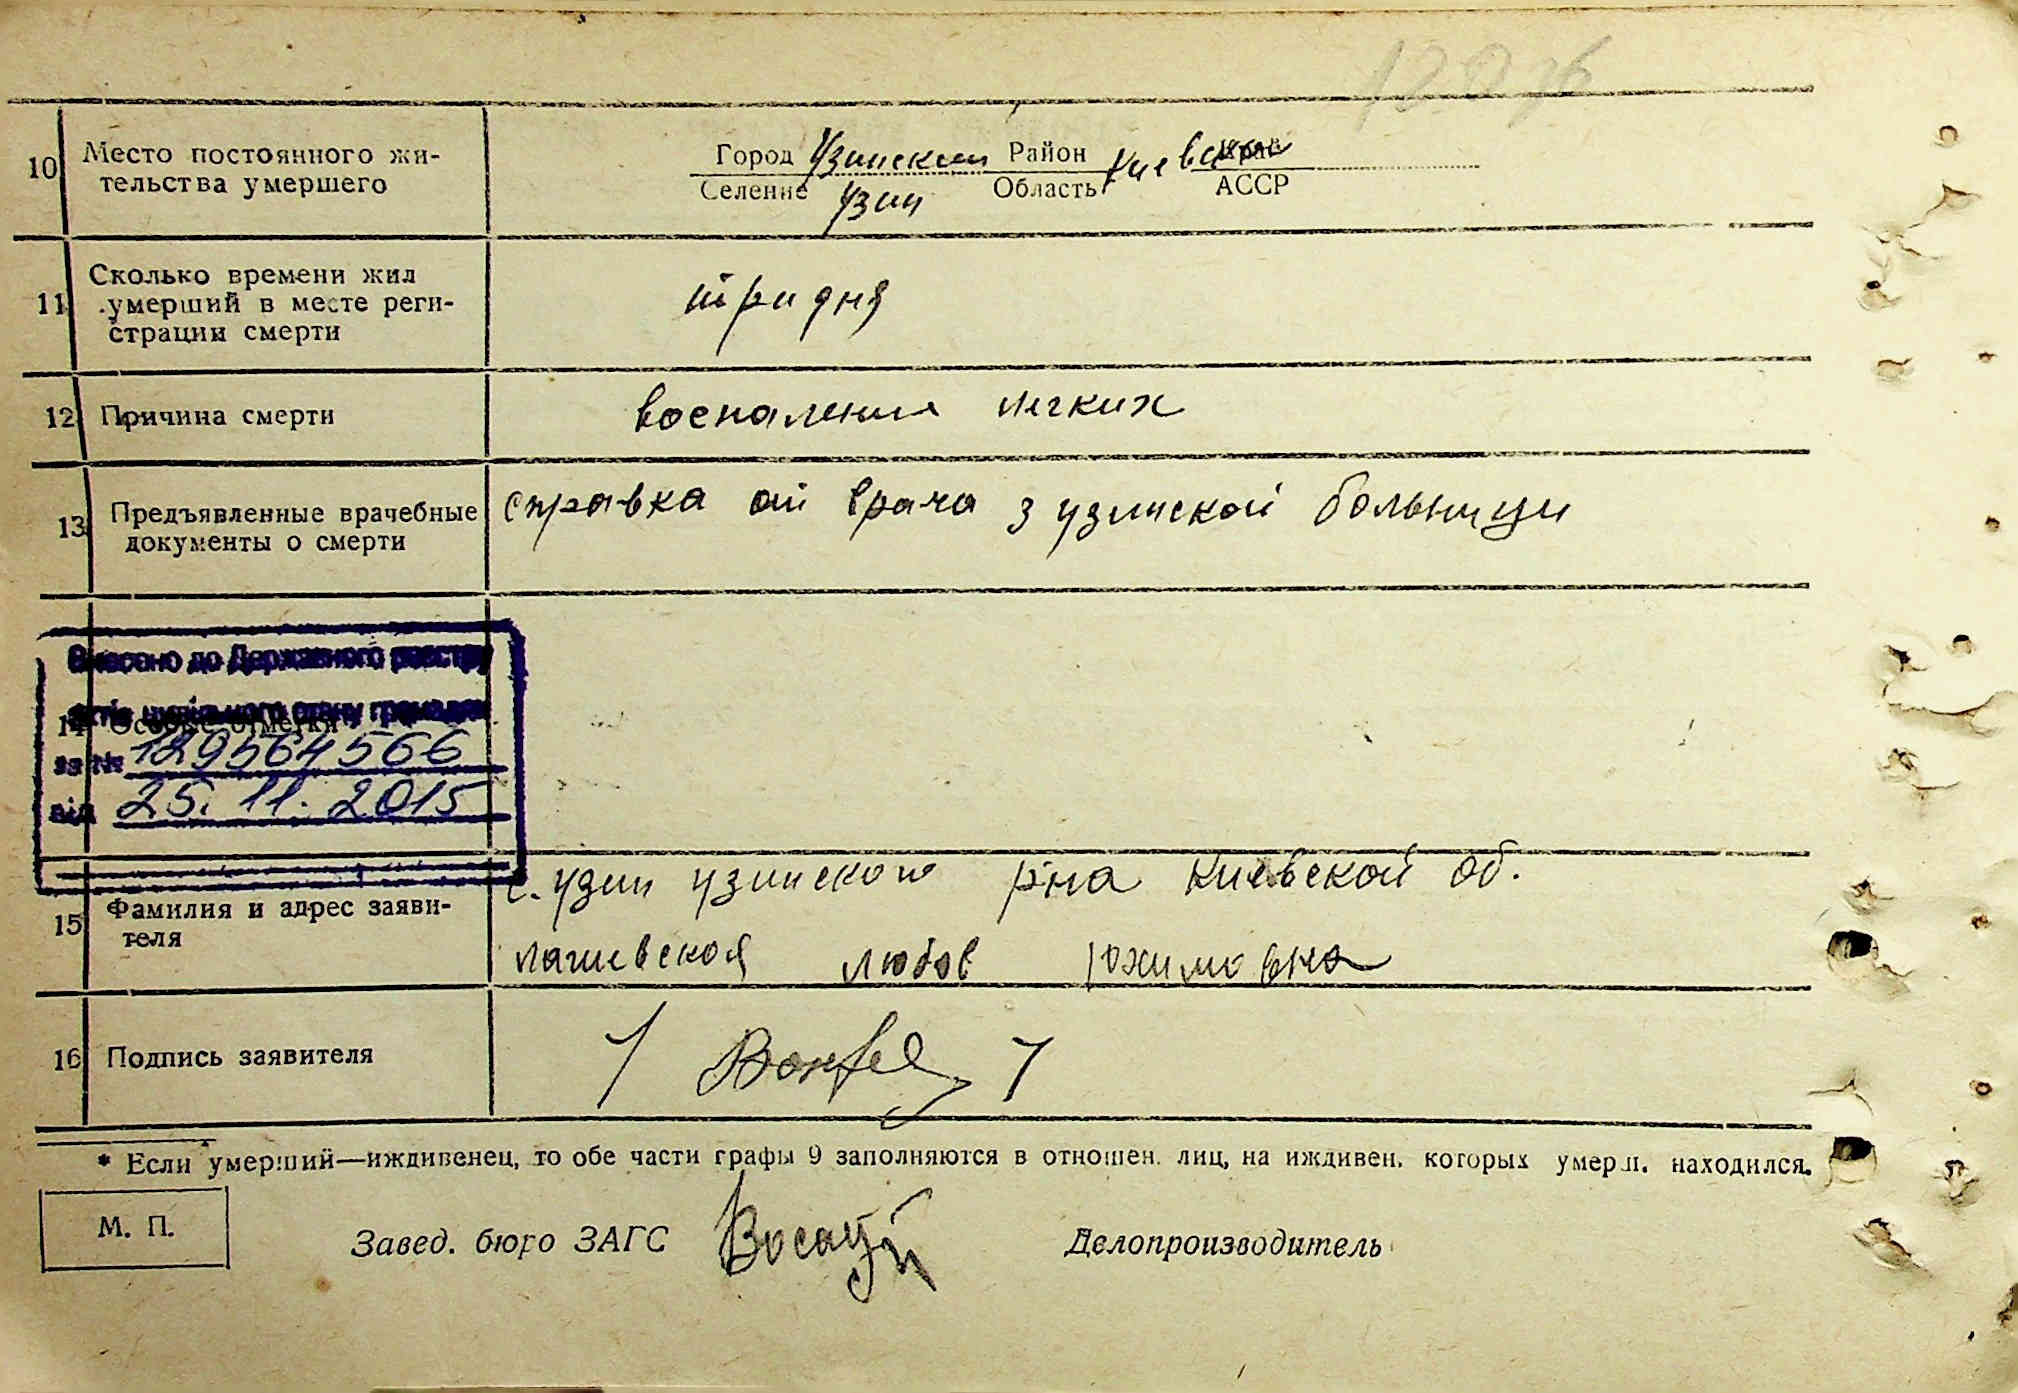 10 Место постоянного жи-
тельства умершего
Город Узинский Район Киевская Край
Селение Узин Область АССР
11 Сколько времени жил
умерший в месте реги-
страции смерти
три дня
12 Причина смерти
воспаления легких
13 Предъявленные врачебные
документы о смерти
справка от врача з узинской больници
Внесено до Державного реєстру
актів цивільного стану громадян
14 Особые отметки
за № 1895664566
від 25.11.2015
с. узин узинского рна Киевской об.
15 Фамилия и адрес заяви-
теля
любов
16 Подпись заявителя
* Если умерший—иждивенец, то обе части графы 9 заполняются в отношен. лиц, на иждивен. которых умерш. находился.
М. П.
Завед. бюро ЗАГС
Делопроизводитель